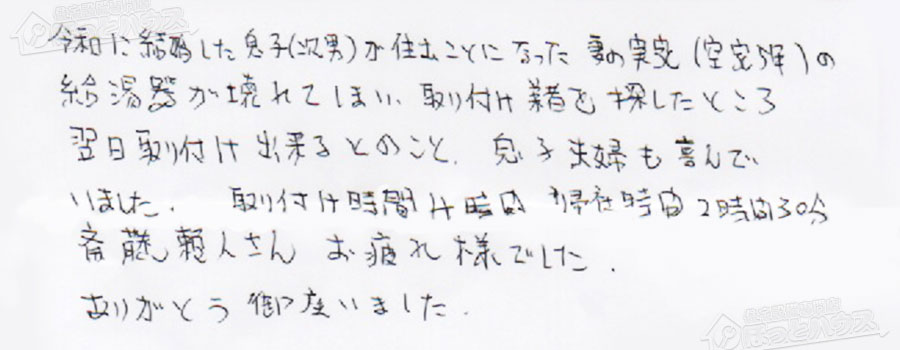 令和に結婚した息子(次男)が住むことになった妻の実家(空家5年)の
給湯器が壊れてしまい、取り付け業者を探したところ
翌日取り付け出来るとのこと、息子夫婦も喜んで
いました。 取り付け時間4時間 帰宅時間2時間30分
斎藤頼人さん お疲れ様でした。
ありがとう御座いました。
ほっとハウス
ほっとハウス